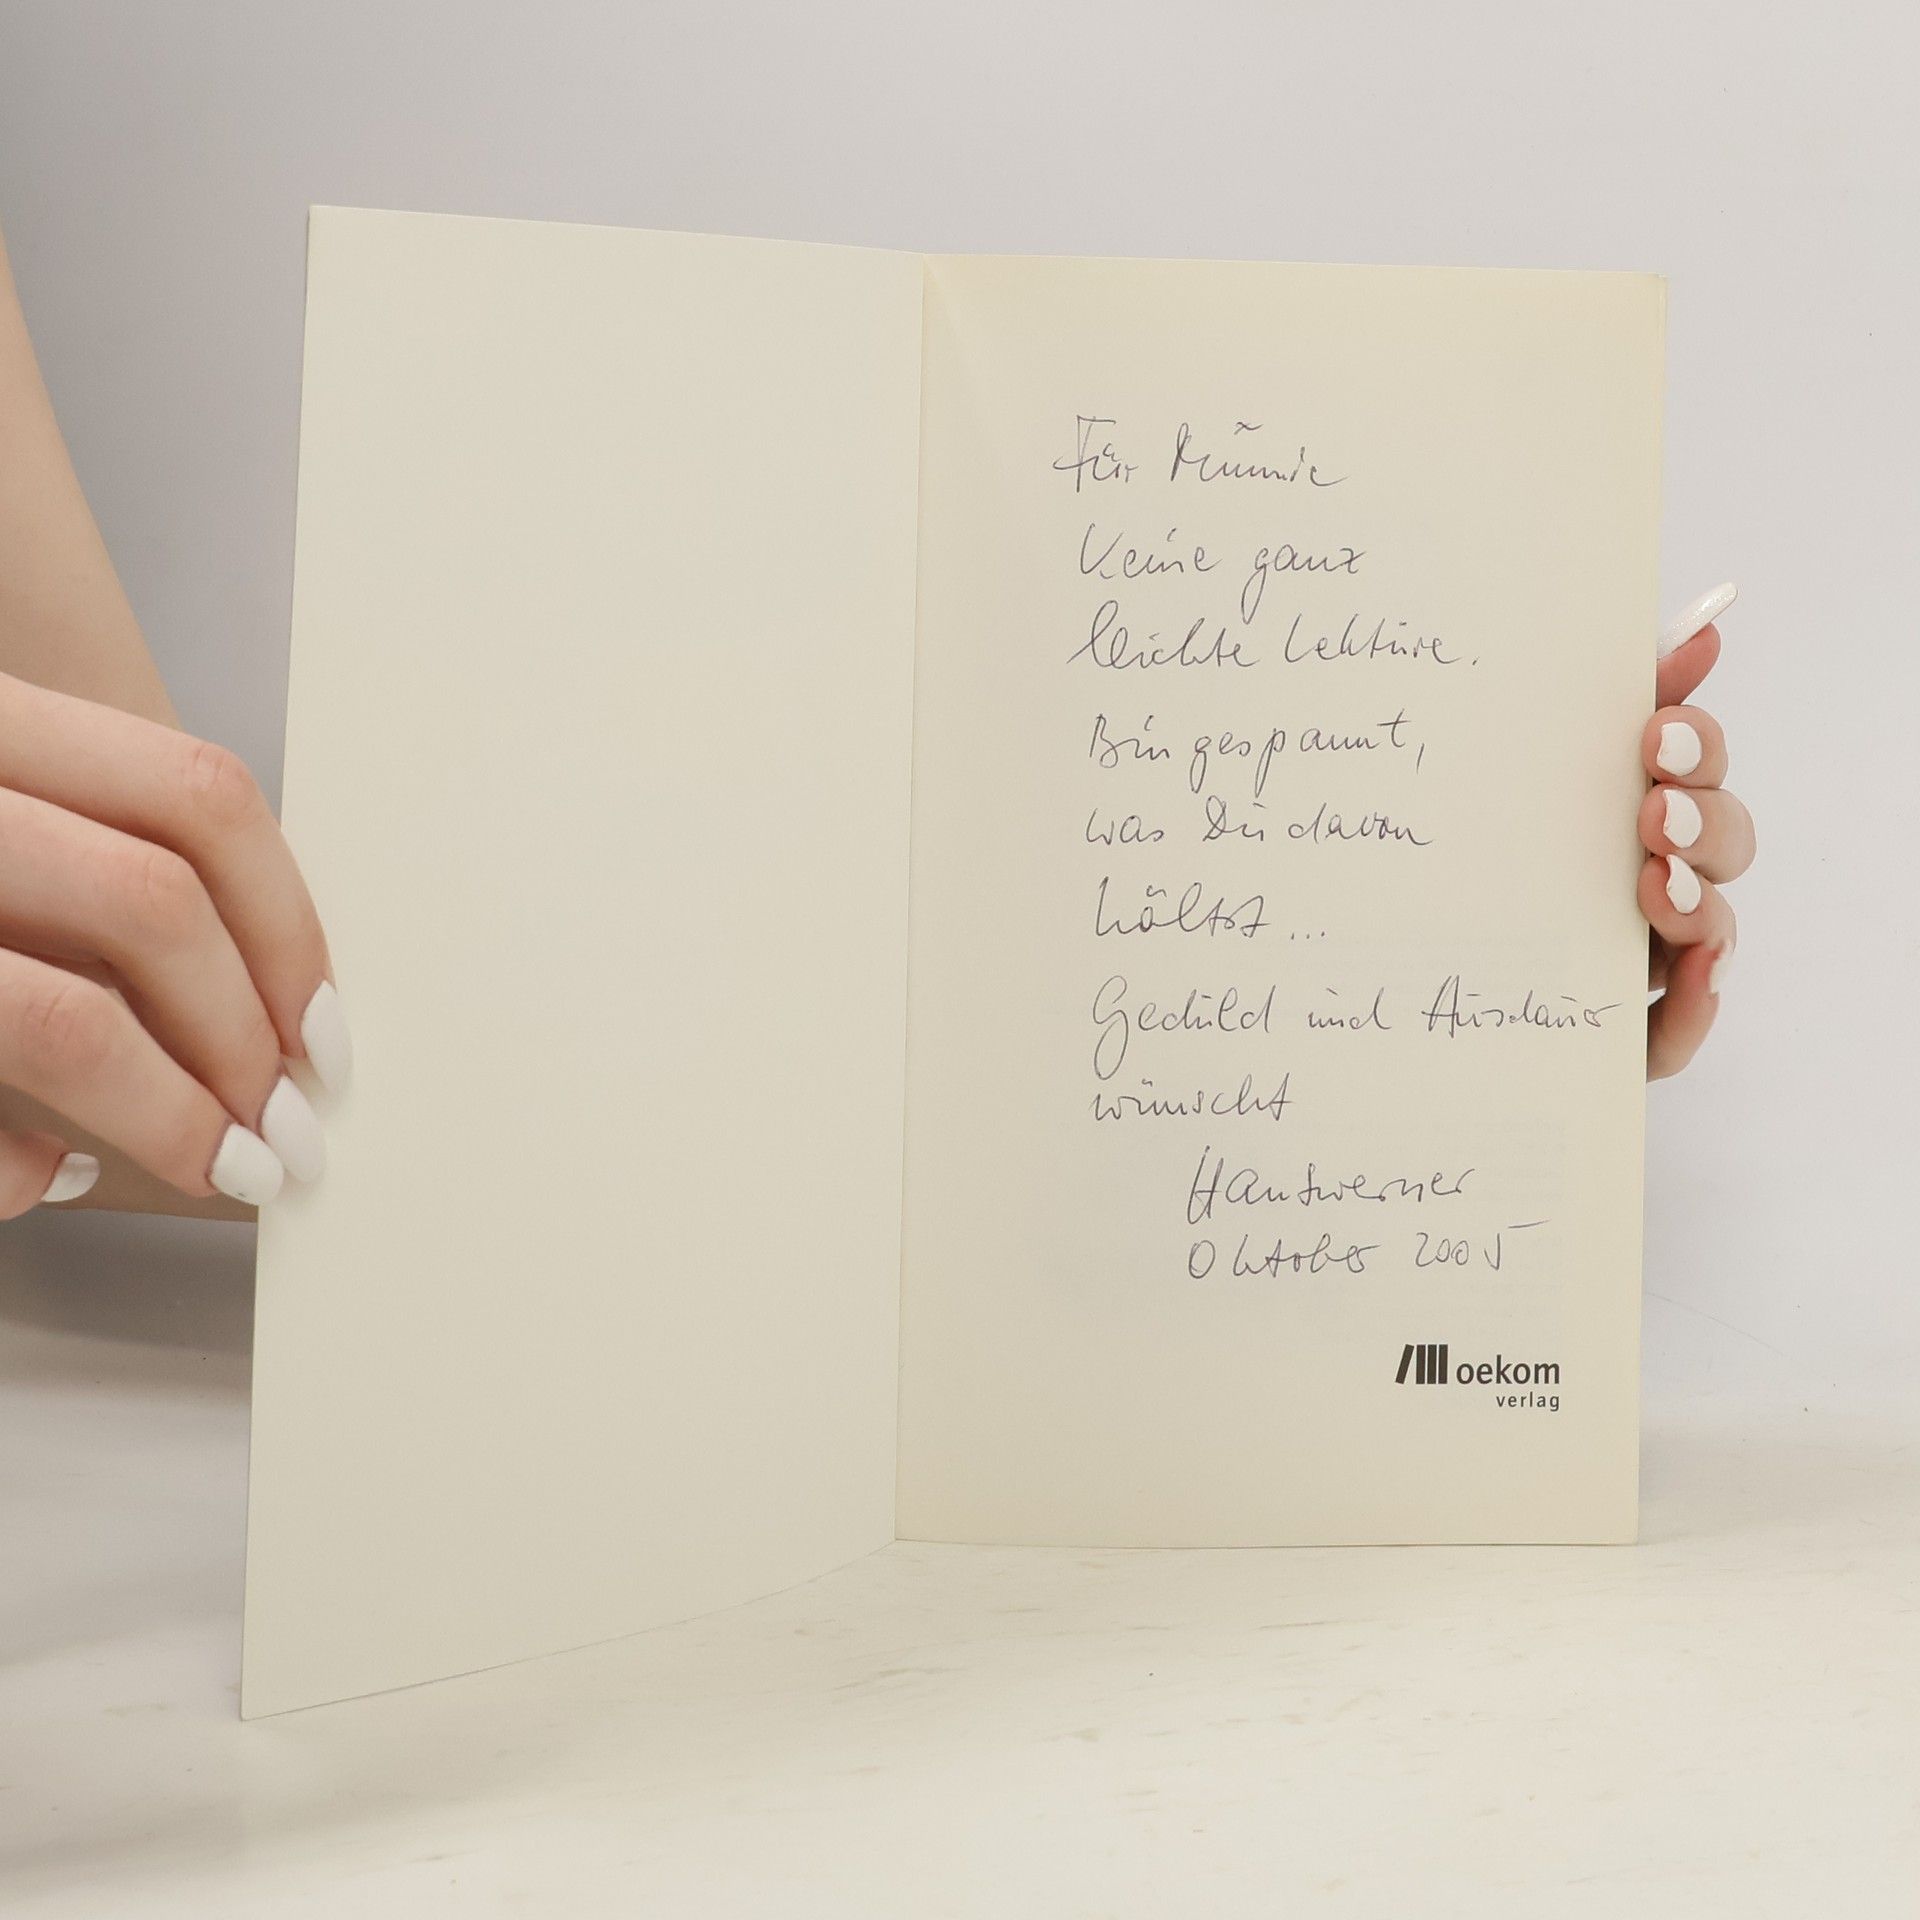 Für
Keine ganz
leichte Lektüre.
Bin gespannt,
was Du davon
hältst ...
Geduld und Ausdauer
wünscht
Hanswerner
Oktober 2005
oekom
verlag